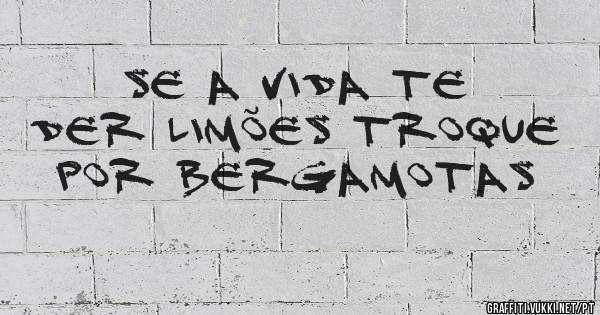 SE A VIDA TE
DER LIMÕES TROQUE
POR BERGAMOTAS
GRAFFITI.VUKKI.NET/PT